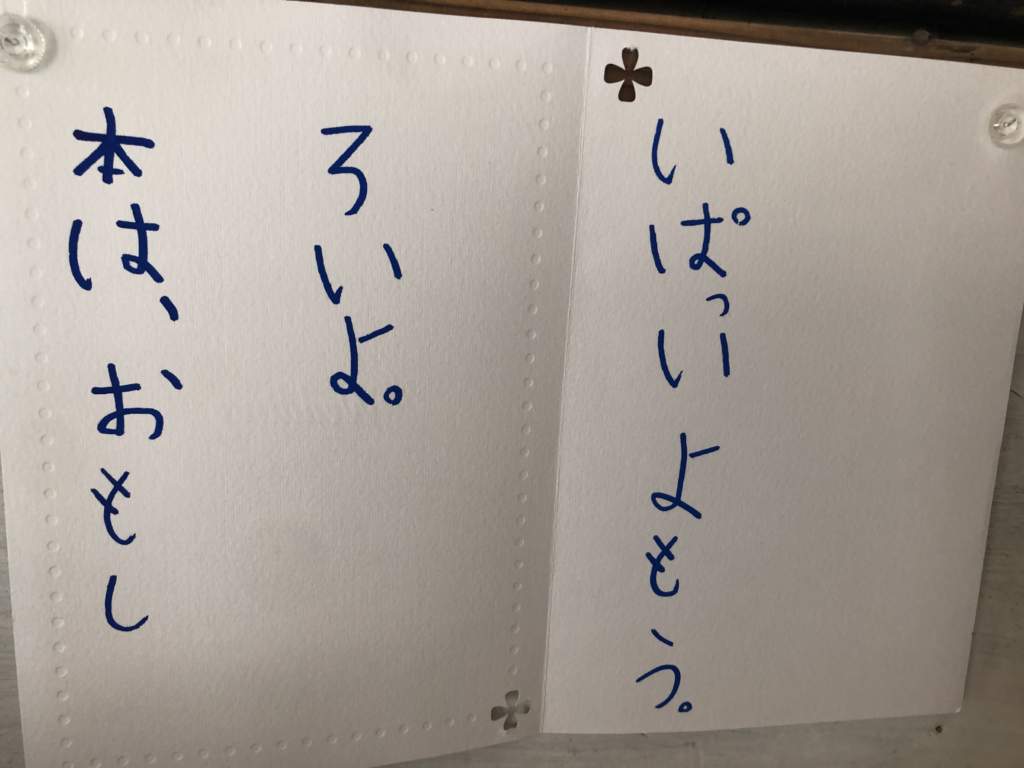 本は、おもし
ろいよ。
いぱっいよもう。